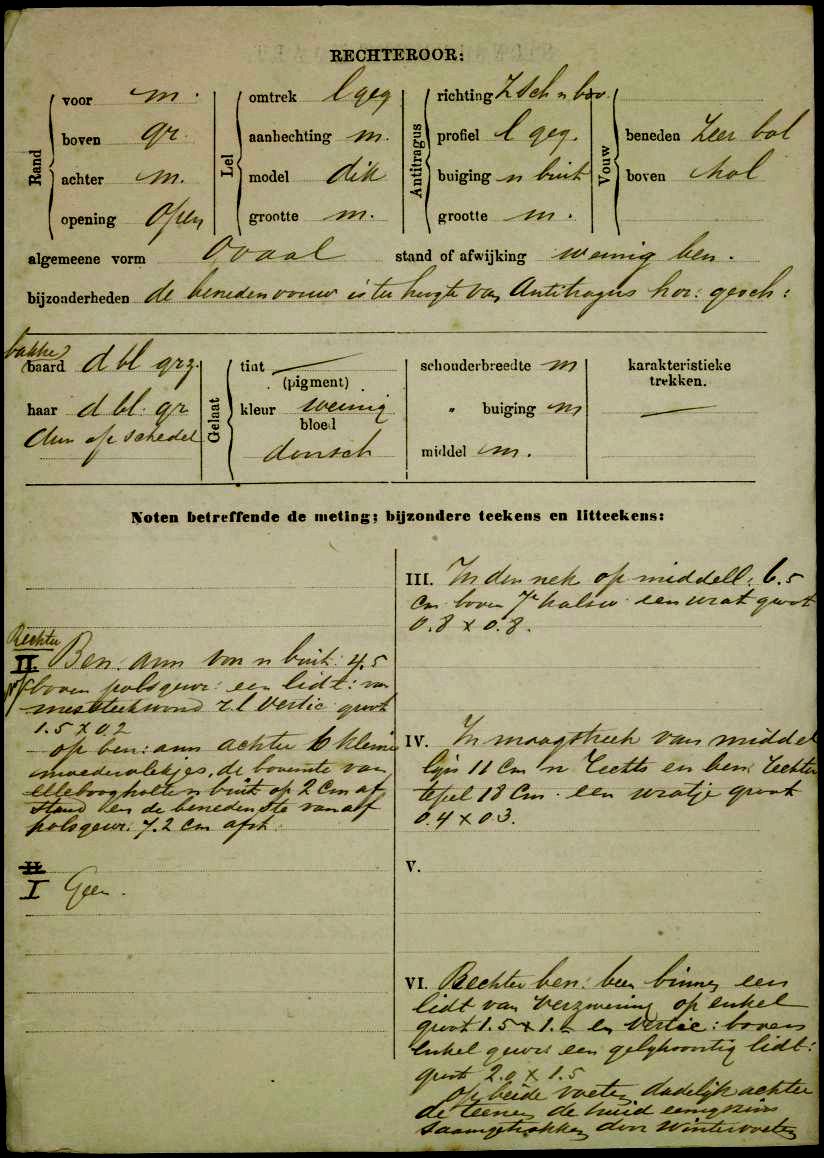 RECHTEROOR:
Rand
voor m.
boven gr.
achter m.
opening open
Lel
omtrek l geg
aanhechting m.
model dik
grootte m.
Antitragus
richting Z sch n bov.
profiel l geg.
buiging n buit
grootte m.
Vouw
beneden Zeer bol
boven hol
algemeene vorm Ovaal stand of afwijking weinig ben.
bijzonderheden de benedenvouw is ter hoogte van Antitragus hor: gesch:
bakke
baard d bl grz.
haar d bl: gr
dun op schedel
Gelaat
tint
(pigment)
kleur weinig
bloed
donsch
schouderbreedte m
" buiging m
middel m.
karakteristieke
trekken.
Noten betreffende de meting; bijzondere teekens en litteekens:
Rechter
II. Ben: arm voor n buit: 4.5
boven polsgewr: een lidt: van
messteekwond r.l vertic groot
1.5 x 02
op ben: arm achter 6 kleine
moedervlekjes, de bovenste van
elleboogholte n buit op 2 Cm af
stand en de benedenste vanaf
polsgewr: 7.2 cm afst.
II
I Geen.
III. In den nek op middell: 6.5
Cm boven 7e halsw: een wrat groot
0.8 x 0.8.
IV. In maagstreek van middel
lijn 11 Cm n rechts en ben: rechter
tepel 18 Cm. een wratje groot
0.4 x 03.
V.
VI. Rechter ben: been binnen een
lidt van verzwering op enkel
groot 1.5 x 1. en vertic: boven
enkel gewr een gelijksoortig lidt:
groot 2.0 x 1.5
op beide voeten dadelijk achter
de teenen de huid eenigszins
saamgetrokken door wintervoeten